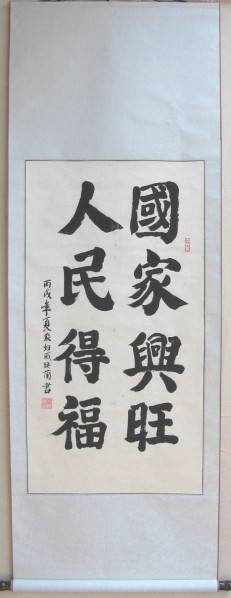 國家興旺
人民得福
丙戌年夏
書